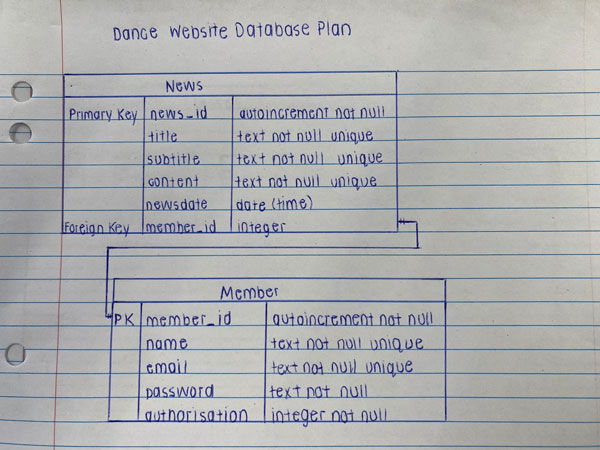 Dance Website Database Plan
News
Primary Key news_id autoincrement not null
title text not null unique
subtitle text not null unique
content text not null unique
newsdate date (time)
Foreign Key member_id integer
Member
PK member_id autoincrement not null
name text not null unique
email text not null unique
password text not null
authorisation integer not null